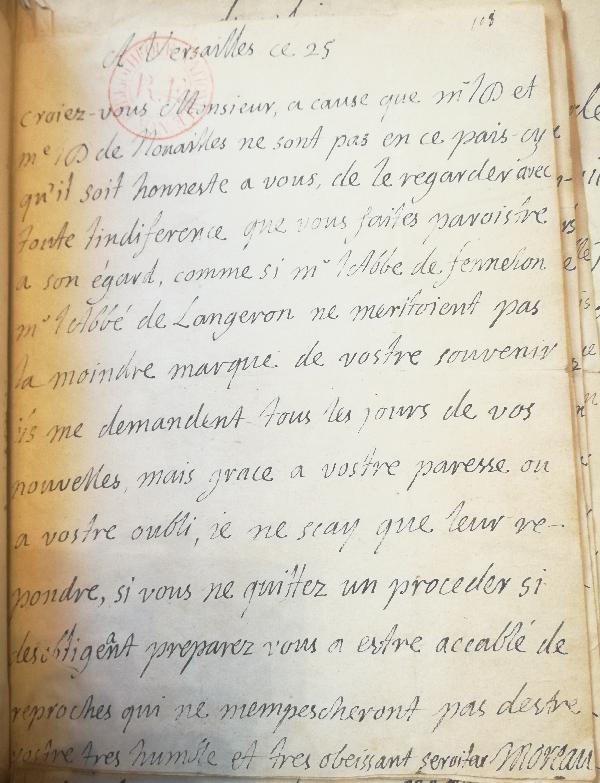 113
A Versailles ce 25
croiez-vous Monsieur, a cause que mr D et
me D de Nouailles ne sont pas en ce pais-cy
qu'il soit honneste a vous, de le regarder avec
toute lindiference que vous faites paroistre
a son égard, comme si mr l'Abbe de fennelon
mr l'Abbé de Langeron ne meritoient pas
la moindre marque de vostre souvenir
ils me demandent tous les jours de vos
nouvelles, mais grace a vostre paresse ou
a vostre oubli, ie ne scay que leur re-
pondre, si vous ne quittez un proceder si
desobligeant preparez vous a estre accablé de
reproches qui ne mempescheront pas destre
vostre tres humble et tres obeissant serviteur Moreau